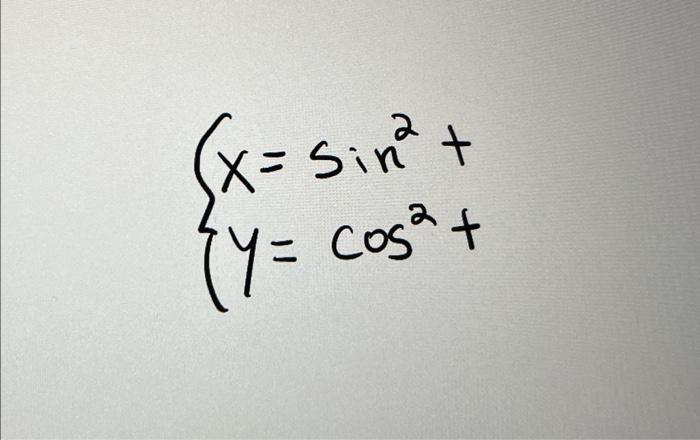 x = sin² t
y = cos² t